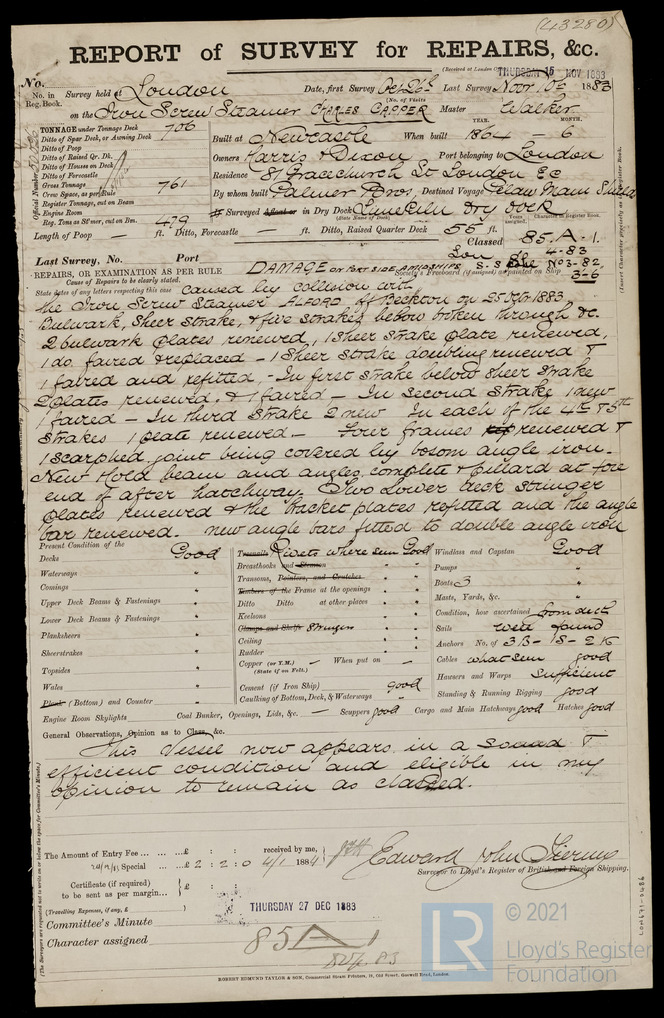 (43280)
REPORT of SURVEY for REPAIRS, &c.
(Received at London
THURSDAY 15 NOV 1883
No.
No. in Reg. Book.
Survey held at London Date, first Survey Oct 26th Last Survey Novr 10th 1883
(No. of Visits
on the Iron Screw Steamer CHARLES CAPPER Master Walker
TONNAGE under Tonnage Deck 706
Ditto of Spar Deck, or Awning Deck
Ditto of Poop
Ditto of Raised Qr. Dk.
Ditto of Houses on Deck
Ditto of Forecastle
Gross Tonnage 761
Crew Space, as per Rule
Register Tonnage, cut on Beam
Engine Room
Reg. Tons as St'mer, cut on Bm. 479
YEAR. MONTH.
Built at Newcastle When built 1864 - 6
Owners Harris & Dixon Port belonging to London
Residence 81 Gracechurch St London EC
By whom built Palmer Bros, Destined Voyage
If Surveyed Afloat or in Dry Dock Limekiln Dry Dock
(State Name of Dock)
Length of Poop — ft. Ditto, Forecastle — ft. Ditto, Raised Quarter Deck 55 ft.
Years assigned. Character in Register Book.
Classed 85.A-1.
Lon 4-83
Last Survey, No. Port
S-S No3-82
3-6
(Insert Character precisely as in the Register Book.
REPAIRS, OR EXAMINATION AS PER RULE
DAMAGE ON PORT SIDE AMIDSHIPS
Society's Freeboard (if assigned) as painted on Ship
Cause of Repairs to be clearly stated.
State dates of any letters respecting this case
caused by collision with
the Iron Screw Steamer ALFORD off Beckton on 25 Oct 1883.
Bulwark, Sheer strake, & five strakes below broken through &c.
2 bulwark plates renewed, 1 sheer strake plate renewed,
1 do. faired & replaced - 1 Sheer strake doubling renewed &
1 faired and refitted, - In first strake below sheer strake
2 plates renewed. & 1 faired - In second strake 1 new
1 faired - In third strake 2 new In each of the 4th & 5th
strakes 1 plate renewed. - Four frames renewed &
1 scarphed, joint being covered by bosom angle iron.
New Hold beam and angles complete & pillard at fore
end of after hatchway. Two Lower deck stringer
plates renewed & the bracket plates refitted and the angle
bar renewed. new angle bars fitted to double angle iron
Present Condition of the
Decks Good
Waterways "
Comings "
Upper Deck Beams & Fastenings "
Lower Deck Beams & Fastenings "
Planksheers "
Sheerstrakes "
Topsides "
Wales "
Plank (Bottom) and Counter "
Engine Room Skylights
Treenails Rivets where seen Good
Breasthooks and Stemson " "
Transoms, Pointers, and Crutches " "
Timbers of the Frame at the openings " "
Ditto Ditto at other places " "
Keelsons " "
Clamps and Shelfs Stringers " "
Ceiling " "
Rudder " "
Copper (or Y.M.) — When put on —
(State if on Felt.)
Cement (if Iron Ship) good
Caulking of Bottom, Deck, & Waterways "
Windlass and Capstan Good
Pumps "
Boats 3 "
Masts, Yards, &c. "
Condition, how ascertained from deck
Sails Were found
Anchors No. of 3 B - 1 S - 2 K
Cables what seen good
Hawsers and Warps Sufficient
Standing & Running Rigging good
Coal Bunker, Openings, Lids, &c. — Scuppers good Cargo and Main Hatchways good Hatches good
General Observations, Opinion as to Class, &c.
This Vessel now appears in a sound &
efficient condition and eligible in my
opinion to remain as classed.
The Amount of Entry Fee £ : : received by me,
Special £ 2 : 2 : 0 4/1 1884
Certificate (if required) to be sent as per margin £ : :
(Travelling Expenses, if any, £ )
Edward John
Surveyor to Lloyd's Register of British and Foreign Shipping.
Committee's Minute THURSDAY 27 DEC 1883
Character assigned 85 A 1
ROBERT EDMUND TAYLOR & SON, Commercial Steam Printers, 19, Old Street, Goswell Road, London.
(The Surveyors are requested not to write on or below the space for Committee's Minute.)
LR © 2021
Lloyd's Register
Foundation